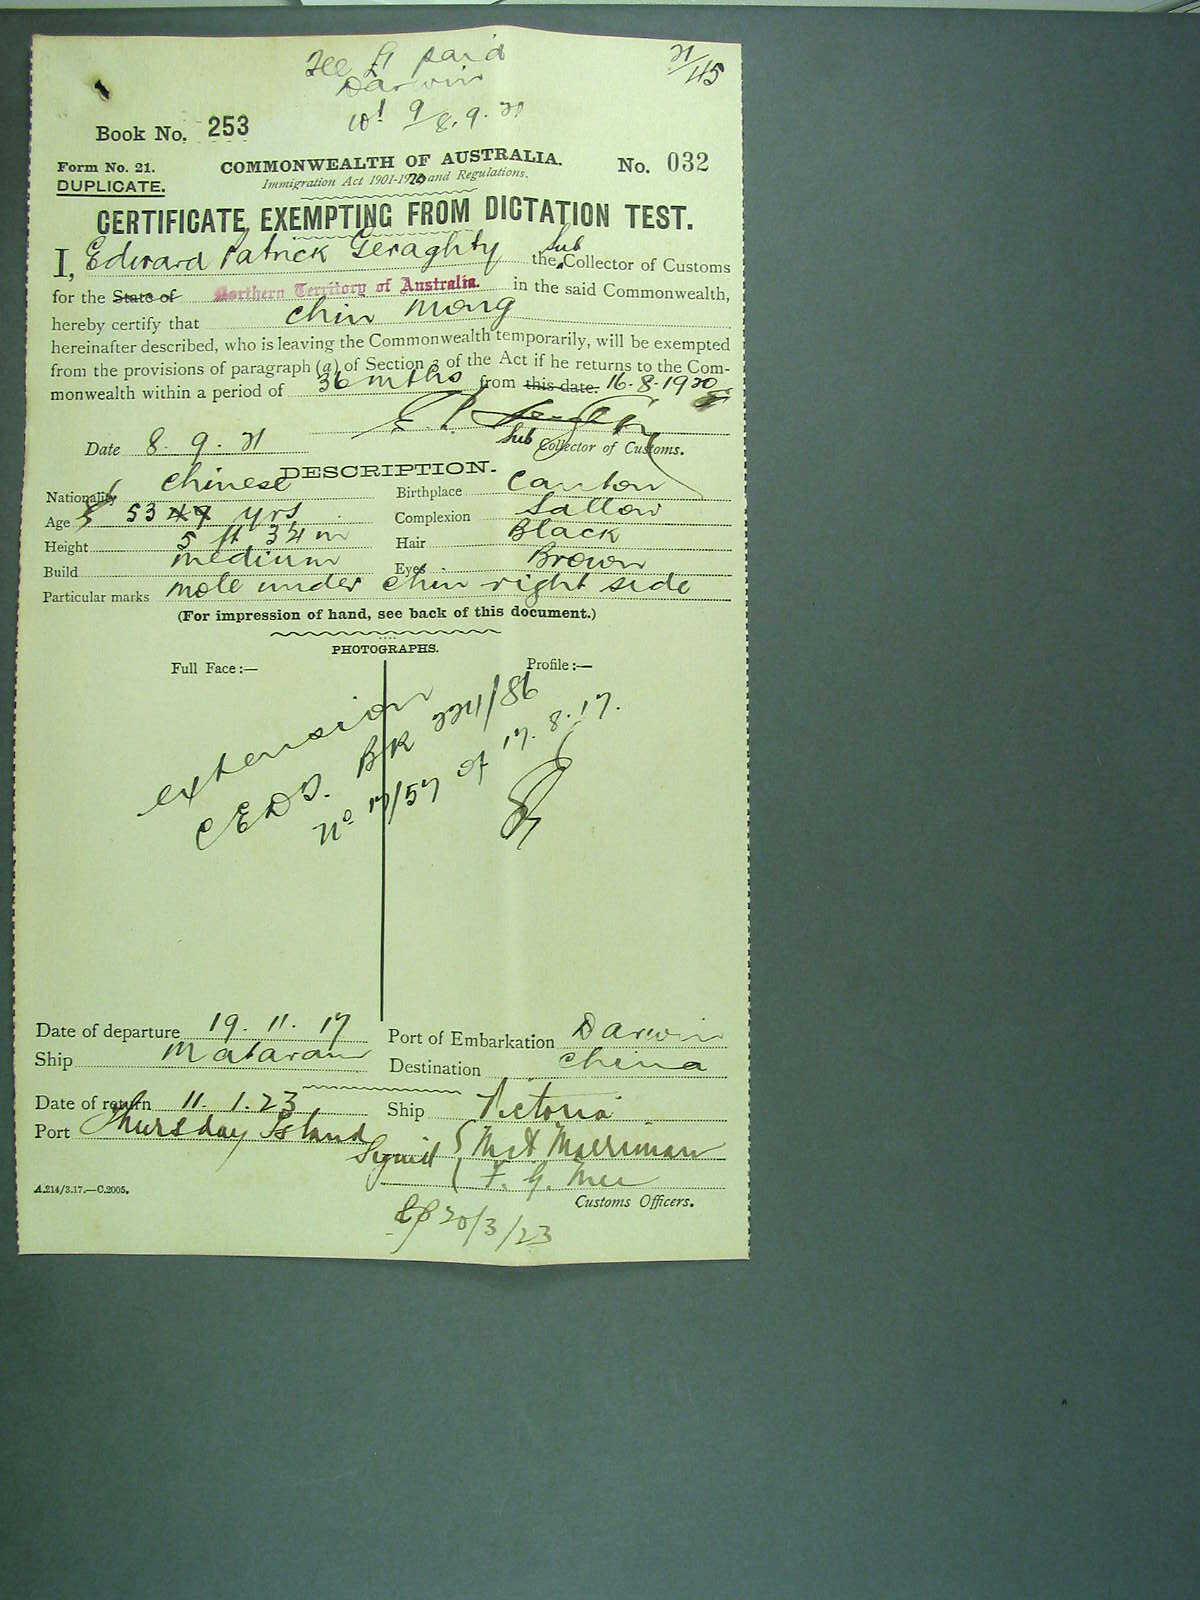 Fee £1 paid
21/45
Darwin
9/8.9.21
Book No. 253
Form No. 21.
COMMONWEALTH OF AUSTRALIA.
No. 032
DUPLICATE.
Immigration Act 1901-1920 and Regulations.
CERTIFICATE EXEMPTING FROM DICTATION TEST.
I, Edward Patrick Geraghty the Sub Collector of Customs
for the State of Northern Territory of Australia. in the said Commonwealth,
hereby certify that Chin Mong
hereinafter described, who is leaving the Commonwealth temporarily, will be exempted
from the provisions of paragraph (a) of Section 3 of the Act if he returns to the Com-
monwealth within a period of 36 mths from this date. 16.8.1920
Date 8.9.21
Sub Collector of Customs.
DESCRIPTION.
Nationality Chinese Birthplace Canton
Age 53 47 yrs Complexion Sallow
Height 5 ft 3¼ in Hair Black
Build medium Eyes Brown
Particular marks mole under chin right side
(For impression of hand, see back of this document.)
PHOTOGRAPHS.
Full Face:— Profile:—
extension
CEDT. BK 224/86
No 17/57 of 17.8.17.
Date of departure 19.11.17 Port of Embarkation Darwin
Ship Mataram Destination China
Date of return 11.1.23 Ship Victoria
Port Thursday Island
Signed Merriman
F. G. Mee
A.214/3.17.—C.2005.
Customs Officers.
20/3/23